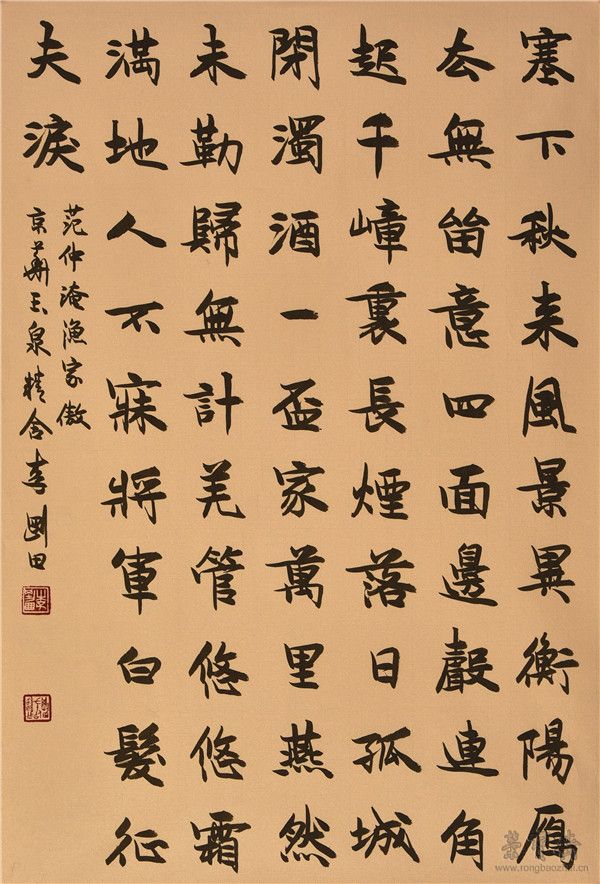 塞下秋来風景異衡陽鴈
去無留意四面邊聲連角
起千嶂裏長煙落日孤城
閉濁酒一盃家萬里燕然
未勒歸無計羌管悠悠霜
滿地人不寐將軍白髮征
夫淚
范仲淹漁家傲
京華玉泉精舍李剛田
榮寶齋
www.rongbaozhai.cn